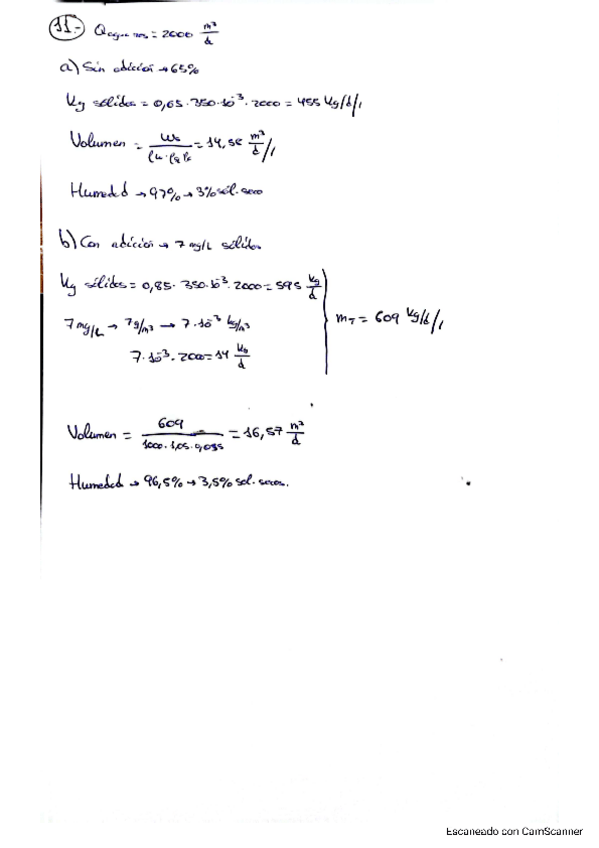 11.- Qagua res = 2000 m³/d
a) Sin adición → 65%
Kg sólidos = 0,65 · 350·10⁻³ · 2000 = 455 Kg/d/,
Volumen = Ws / = 14,58 m³/d/,
Humedad → 97% → 3% sól. seco
b) Con adición → 7 mg/L sólidos
Kg sólidos = 0,85 · 350·10⁻³ · 2000 = 595 Kg/d
mT = 609 Kg/d/,
7 mg/L → 7 g/m³ → 7·10⁻³ kg/m³
7·10⁻³ · 2000 = 14 Kg/d
Volumen = 609 / 1000 · 1,05 · 0,035 = 16,57 m³/d
Humedad → 96,5% → 3,5% sol. secos.
Escaneado con CamScanner